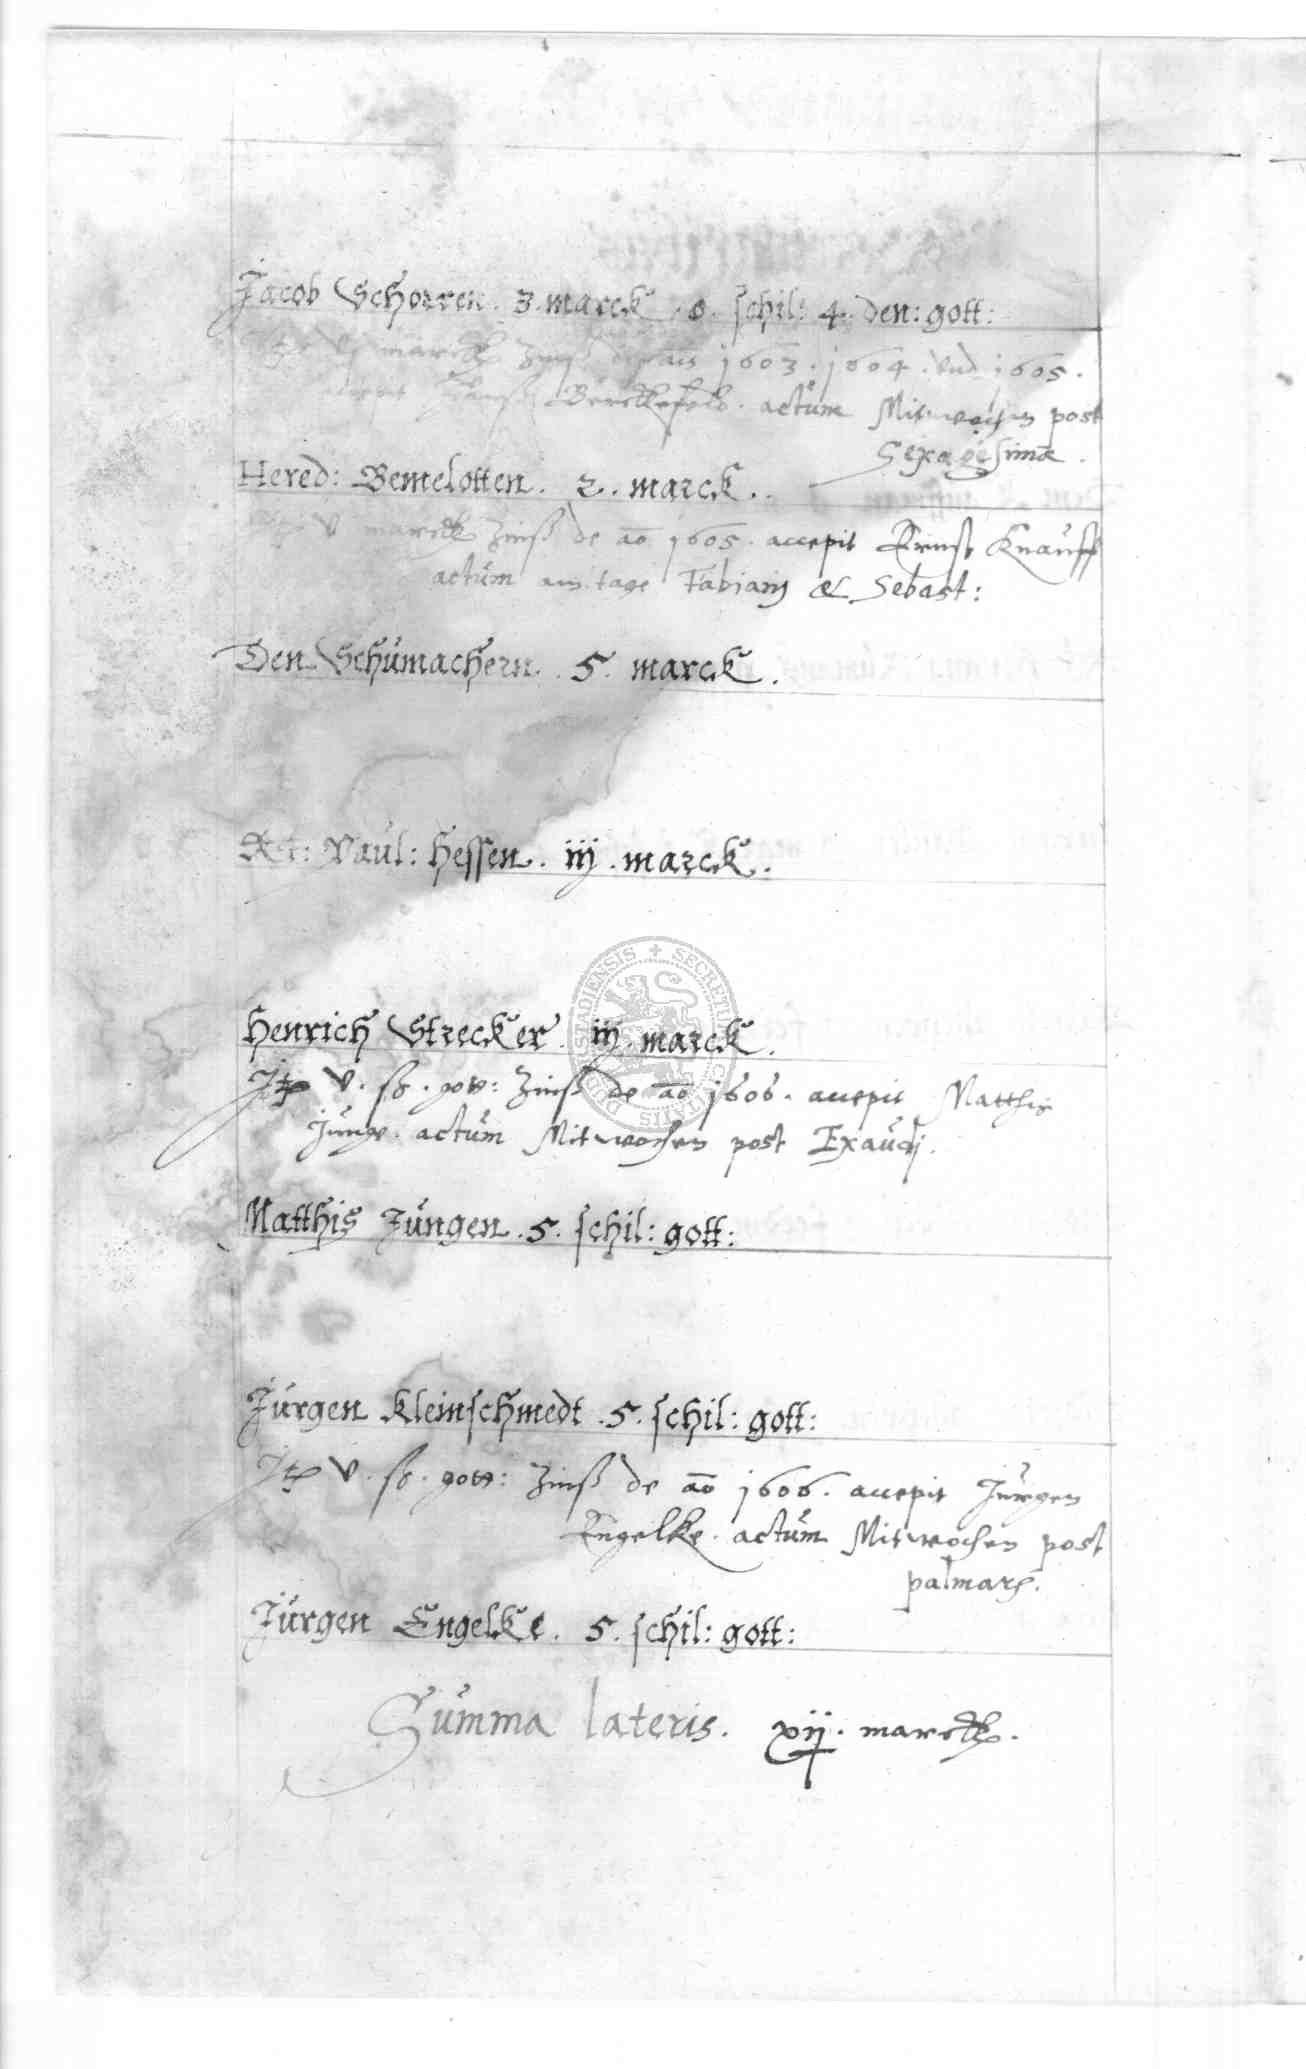 Jacob Schorren. 3. marck. 6. schil: 4. den: gott:
marck Zinß 1603. 1604. vnd 1605.
Berckefeld. actum Mitwochen post
Sexagesimæ.
Hered: Bemelotten. 2. marck.
v marck Zinß de ao 1605. accepit Ernst Knauff
actum am tage Fabiani & Sebast:
Den Schumachern. 5. marck.
Paul: Hessen. iij. marck.
Henrich Strecker. iij. marck.
Itē v. ß. gott: Zinß de ao 1606. accepit Matthis
Junge. actum Mitwochen post Exaudi.
Matthis Jungen. 5. schil: gott:
Jurgen Kleinschmedt. 5. schil: gott:
Itē v. ß. gott: Zinß de ao 1606. accepit Jurgen
Engelke. actum Mitwochen post
palmarū.
Jurgen Engelke. 5. schil: gott:
Summa lateris. xij. marck.
SECRETUM CIVITATIS DUDERSTADIENSIS